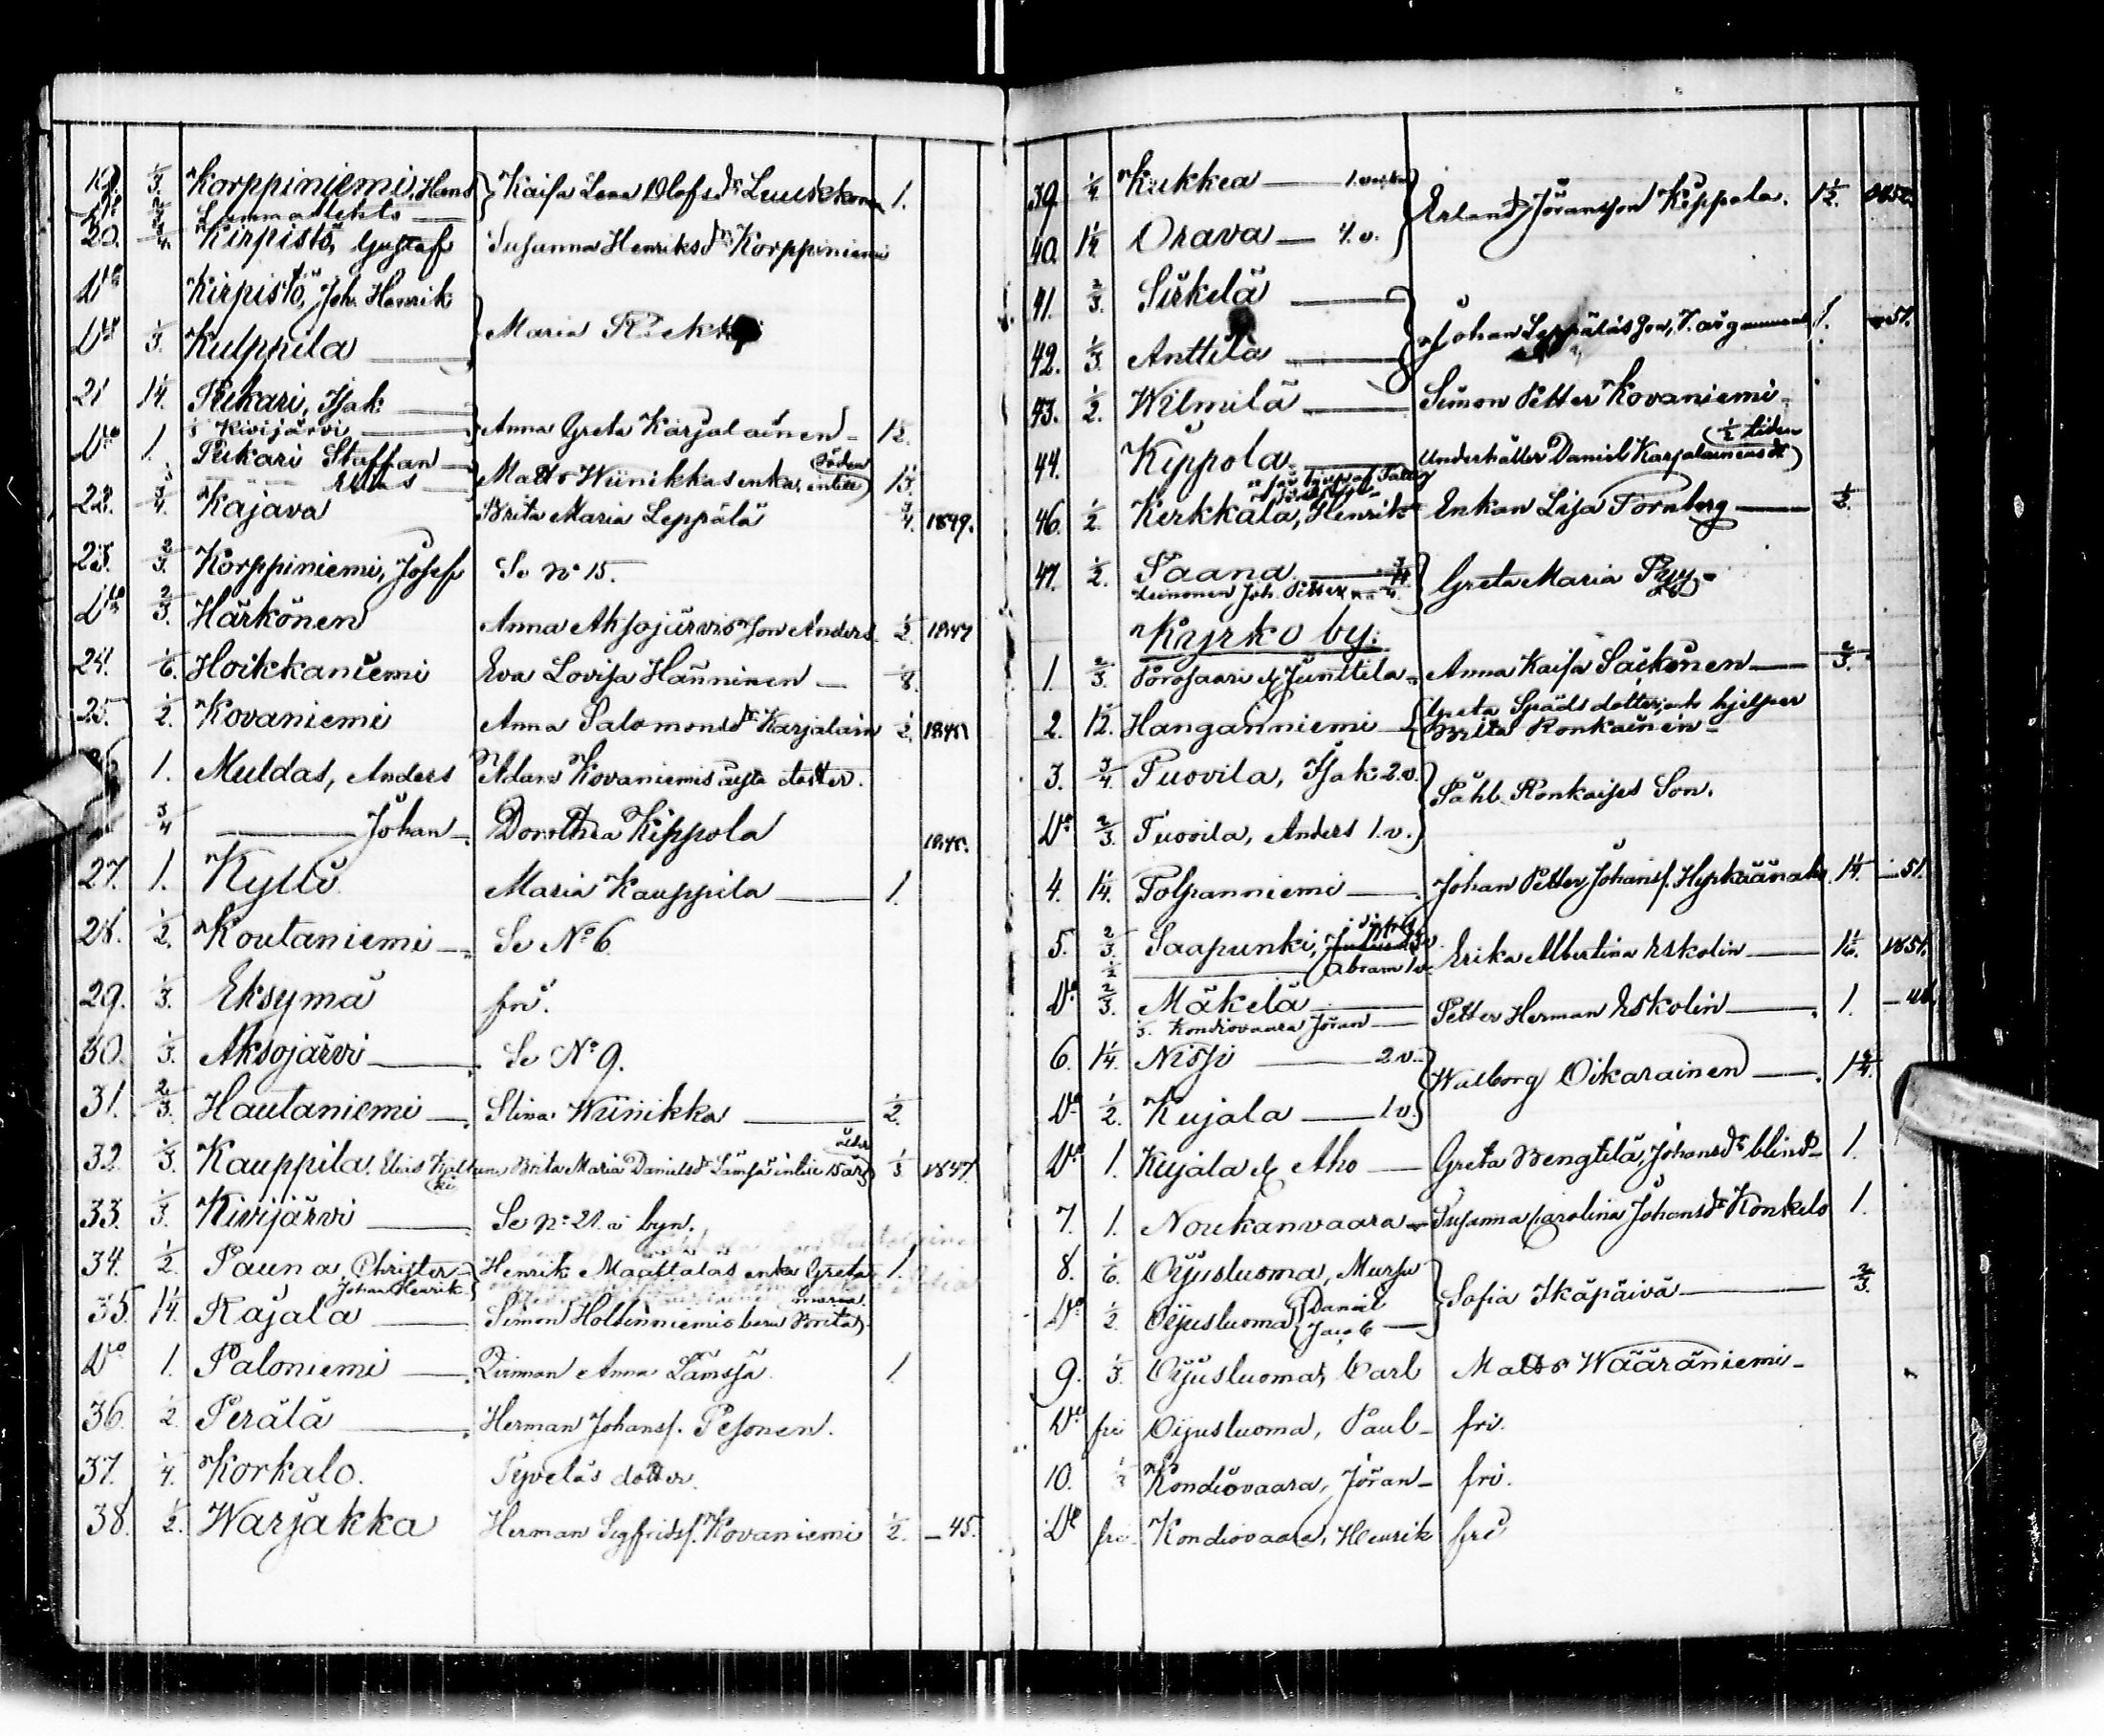 19. 1/3. Korppiniemi, Hans } Kaisa Lena Olofsdr Luukkonen 1.
Do 2/3 Lammaslehto
20. 3/4. Kirpistö, Gustaf Susanna Henriksdr Korppiniemi
Do Kirpistö, Joh. Henrik
Do 1/3. Kulppila } Maria
21 1 1/4. Pukari, Isak
1/3 Kivijärvi } Anna Greta Karjalainen
Do 1. Pukari Staffan
Matts Wiinikkas enka, intill döden
22. 3/4. Kajava Brita Maria Leppälä 3/4. 1849.
23. 2/3. Korppiniemi, Josef Se No 15.
Do 2/3. Härkönen Anna Aksojärvis son Anders 1/2 1847
24. 1/6. Hoikkaniemi Eva Lovisa Hänninen 1/8.
25. 1/2. Kovaniemi Anna Salomonsdr Karjalain 1/2.
1. Muldas, Anders Adam Kovaniemis dotter.
3/4 Johan Dorothea Kippola
27. 1. Kyllö Maria Kauppila 1.
28. 1/2. Koutaniemi Se No 6
29. 1/3. Eksymä fri.
30. 1/3. Aksojärvi Se No 9.
31. 2/3. Hautaniemi Stina Wiinikka 1/2.
32. 1/3. Kauppila, Elias Brita Maria Danielsdr Lämsä intill 15 år 1/3 1847.
33. 1/3. Kivijärvi Se No 21. i byn.
34. 1/2. Pauna Christer Henrik Määttäläs enka Greta 1.
Johan Henrik maria
35. 1 1/4. Rajala Simon Holtinniemis barn Brita
Do 1. Paloniemi Anna Lämsjä 1.
36. 1/2. Perälä Herman Johanss. Pesonen.
37. 1/4. Korkalo. dotter.
38. 1/2. Warjakka Herman Sigfridss. Kovaniemi 1/2. — 45.
39. 1/4 Kukkea
Erland Jöransson Kippola. 1 1/2. 1852.
40. 1 1/4. Orava — 4.v.
41. 2/3. Sirkelä
Johan Leppäläs son, 7. år gammal 1. — 51.
42. 1/3. Anttila
43. 1/2. Wilmilä Simon Petter Kovaniemi
1/2 tiden
44. Kippola Underhåller Daniel Karjalainens dr
46. 1/2. Kerkkälä, Henrik Enkan Lisa Tornberg 1/2.
47. 1/2. Paana } Greta Maria Pyy
Leinonen Joh. Petter
Kyrko by.
1. 2/3. Porosaari & Junttila Anna Kaisa Säkkinen 2/3.
2. 1 1/2. Hanganniemi { Greta Späds dotter, och hjelper
Brita Ronkainen
3. 3/4. Tuovila, Isak 2.v. } Påhl Ronkaises Son.
Do 2/3. Tuovila, Anders 1.v.
4. 1 1/4. Tolpanniemi Johan Petter Johanss. Hyrkäänaho 1 1/4. — 51.
5. 2/3. Saapunki, Erika Albertina Eskolin 1 1/6. 1851.
1/2 Abram 1v.
Do 2/3. Mäkelä Petter Herman Eskolin 1.
1/3. Kondiovaara Jöran
6. 1 1/4. Nissi 2.v. } Walborg Oikarainen
Do 1/2. Kujala 1.v.
Do 1. Kujala & Aho Greta Bengtilä, Johansdr blind 1.
7. 1. Noukanvaara Susanna Carolina Johansdr Konkelo 1.
8. 1/6. Oijusluoma, Mursu } Sofia Ikäpäivä 2/3.
Do 1/2. Oijusluoma { Daniel
Jacob
9. 1/3. Oijusluoma, Carl Matts Wääräniemi
Do fri Oijusluoma, Paul fri.
10. 1/3 Kondiovaara, Jöran fri.
Do fri. Kondiovaara, Henrik fri